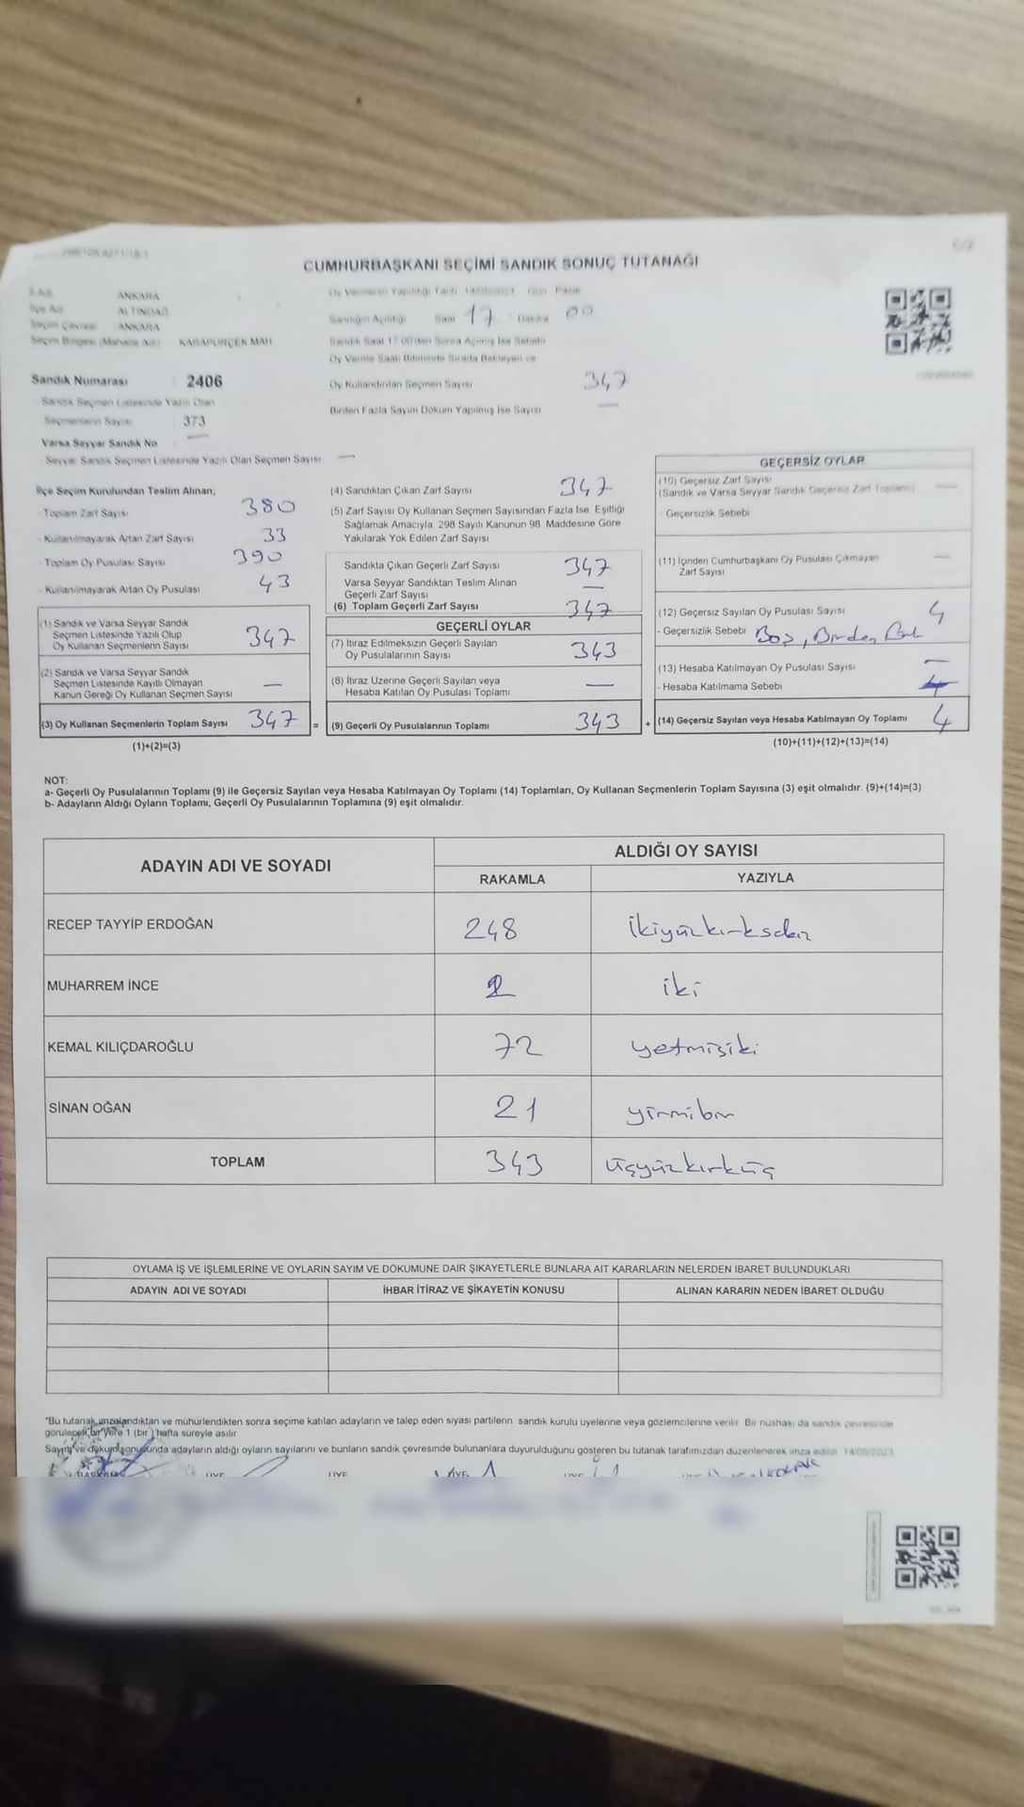 CUMHURBAŞKANI SEÇİMİ SANDIK SONUÇ TUTANAĞI
ANKARA
İlçe Adı ALTINDAĞ
Seçim Çevresi ANKARA
Seçim Bölgesi (Mahalle Adı) KARAPÜRÇEK MAH
Sandık Numarası 2406
Sandık Seçmen Listesinde Yazılı Olan
Seçmenlerin Sayısı 373
Varsa Seyyar Sandık No —
Seyyar Sandık Seçmen Listesinde Yazılı Olan Seçmen Sayısı —
Oy Vermenin Yapıldığı Tarih 14/05/2023 Gün Pazar
Sandığın Açıldığı Saat 17 Dakika 00
Sandık Saat 17.00'den Sonra Açılmış İse Sebebi
Oy Verme Saati Bitiminde Sırada Bekleyen ve
Oy Kullandırılan Seçmen Sayısı 347
Birden Fazla Sayım Döküm Yapılmış İse Sayısı —
İlçe Seçim Kurulundan Teslim Alınan;
- Toplam Zarf Sayısı 380
- Kullanılmayarak Artan Zarf Sayısı 33
- Toplam Oy Pusulası Sayısı 390
- Kullanılmayarak Artan Oy Pusulası 43
(1) Sandık ve Varsa Seyyar Sandık
Seçmen Listesinde Yazılı Olup
Oy Kullanan Seçmenlerin Sayısı 347
(2) Sandık ve Varsa Seyyar Sandık
Seçmen Listesinde Kayıtlı Olmayan
Kanun Gereği Oy Kullanan Seçmen Sayısı —
(3) Oy Kullanan Seçmenlerin Toplam Sayısı 347 =
(1)+(2)=(3)
(4) Sandıktan Çıkan Zarf Sayısı 347
(5) Zarf Sayısı Oy Kullanan Seçmen Sayısından Fazla İse, Eşitliği
Sağlamak Amacıyla 298 Sayılı Kanunun 98. Maddesine Göre
Yakılarak Yok Edilen Zarf Sayısı
Sandıkta Çıkan Geçerli Zarf Sayısı 347
Varsa Seyyar Sandıktan Teslim Alınan
Geçerli Zarf Sayısı —
(6) Toplam Geçerli Zarf Sayısı 347
GEÇERLİ OYLAR
(7) İtiraz Edilmeksizin Geçerli Sayılan
Oy Pusulalarının Sayısı 343
(8) İtiraz Üzerine Geçerli Sayılan veya
Hesaba Katılan Oy Pusulası Toplamı —
(9) Geçerli Oy Pusulalarının Toplamı 343 +
GEÇERSİZ OYLAR
(10) Geçersiz Zarf Sayısı
(Sandık ve Varsa Seyyar Sandık Geçersiz Zarf Toplamı) —
- Geçersizlik Sebebi
(11) İçinden Cumhurbaşkanı Oy Pusulası Çıkmayan
Zarf Sayısı —
(12) Geçersiz Sayılan Oy Pusulası Sayısı 4
- Geçersizlik Sebebi Boş, Birden
(13) Hesaba Katılmayan Oy Pusulası Sayısı —
- Hesaba Katılmama Sebebi
(14) Geçersiz Sayılan veya Hesaba Katılmayan Oy Toplamı 4
(10)+(11)+(12)+(13)=(14)
NOT:
a- Geçerli Oy Pusulalarının Toplamı (9) ile Geçersiz Sayılan veya Hesaba Katılmayan Oy Toplamı (14) Toplamları, Oy Kullanan Seçmenlerin Toplam Sayısına (3) eşit olmalıdır. (9)+(14)=(3)
b- Adayların Aldığı Oyların Toplamı, Geçerli Oy Pusulalarının Toplamına (9) eşit olmalıdır.
ADAYIN ADI VE SOYADI
ALDIĞI OY SAYISI
RAKAMLA YAZIYLA
RECEP TAYYİP ERDOĞAN 248 ikiyüzkırksekiz
MUHARREM İNCE 2 iki
KEMAL KILIÇDAROĞLU 72 yetmişiki
SİNAN OĞAN 21 yirmibir
TOPLAM 343 üçyüzkırküç
OYLAMA İŞ VE İŞLEMLERİNE VE OYLARIN SAYIM VE DÖKÜMÜNE DAİR ŞİKAYETLERLE BUNLARA AİT KARARLARIN NELERDEN İBARET BULUNDUKLARI
ADAYIN ADI VE SOYADI İHBAR İTİRAZ VE ŞİKAYETİN KONUSU ALINAN KARARIN NEDEN İBARET OLDUĞU
*Bu tutanak imzalandıktan ve mühürlendikten sonra seçime katılan adayların ve talep eden siyasi partilerin sandık kurulu üyelerine veya gözlemcilerine verilir. Bir nüshası da sandık çevresinde
görülecek bir yere 1 (bir) hafta süreyle asılır.
Sayım ve döküm sonucunda adayların aldığı oyların sayılarını ve bunların sandık çevresinde bulunanlara duyurulduğunu gösteren bu tutanak tarafımızdan düzenlenerek imza edildi. 14/05/2023
BAŞKAN ÜYE ÜYE ÜYE